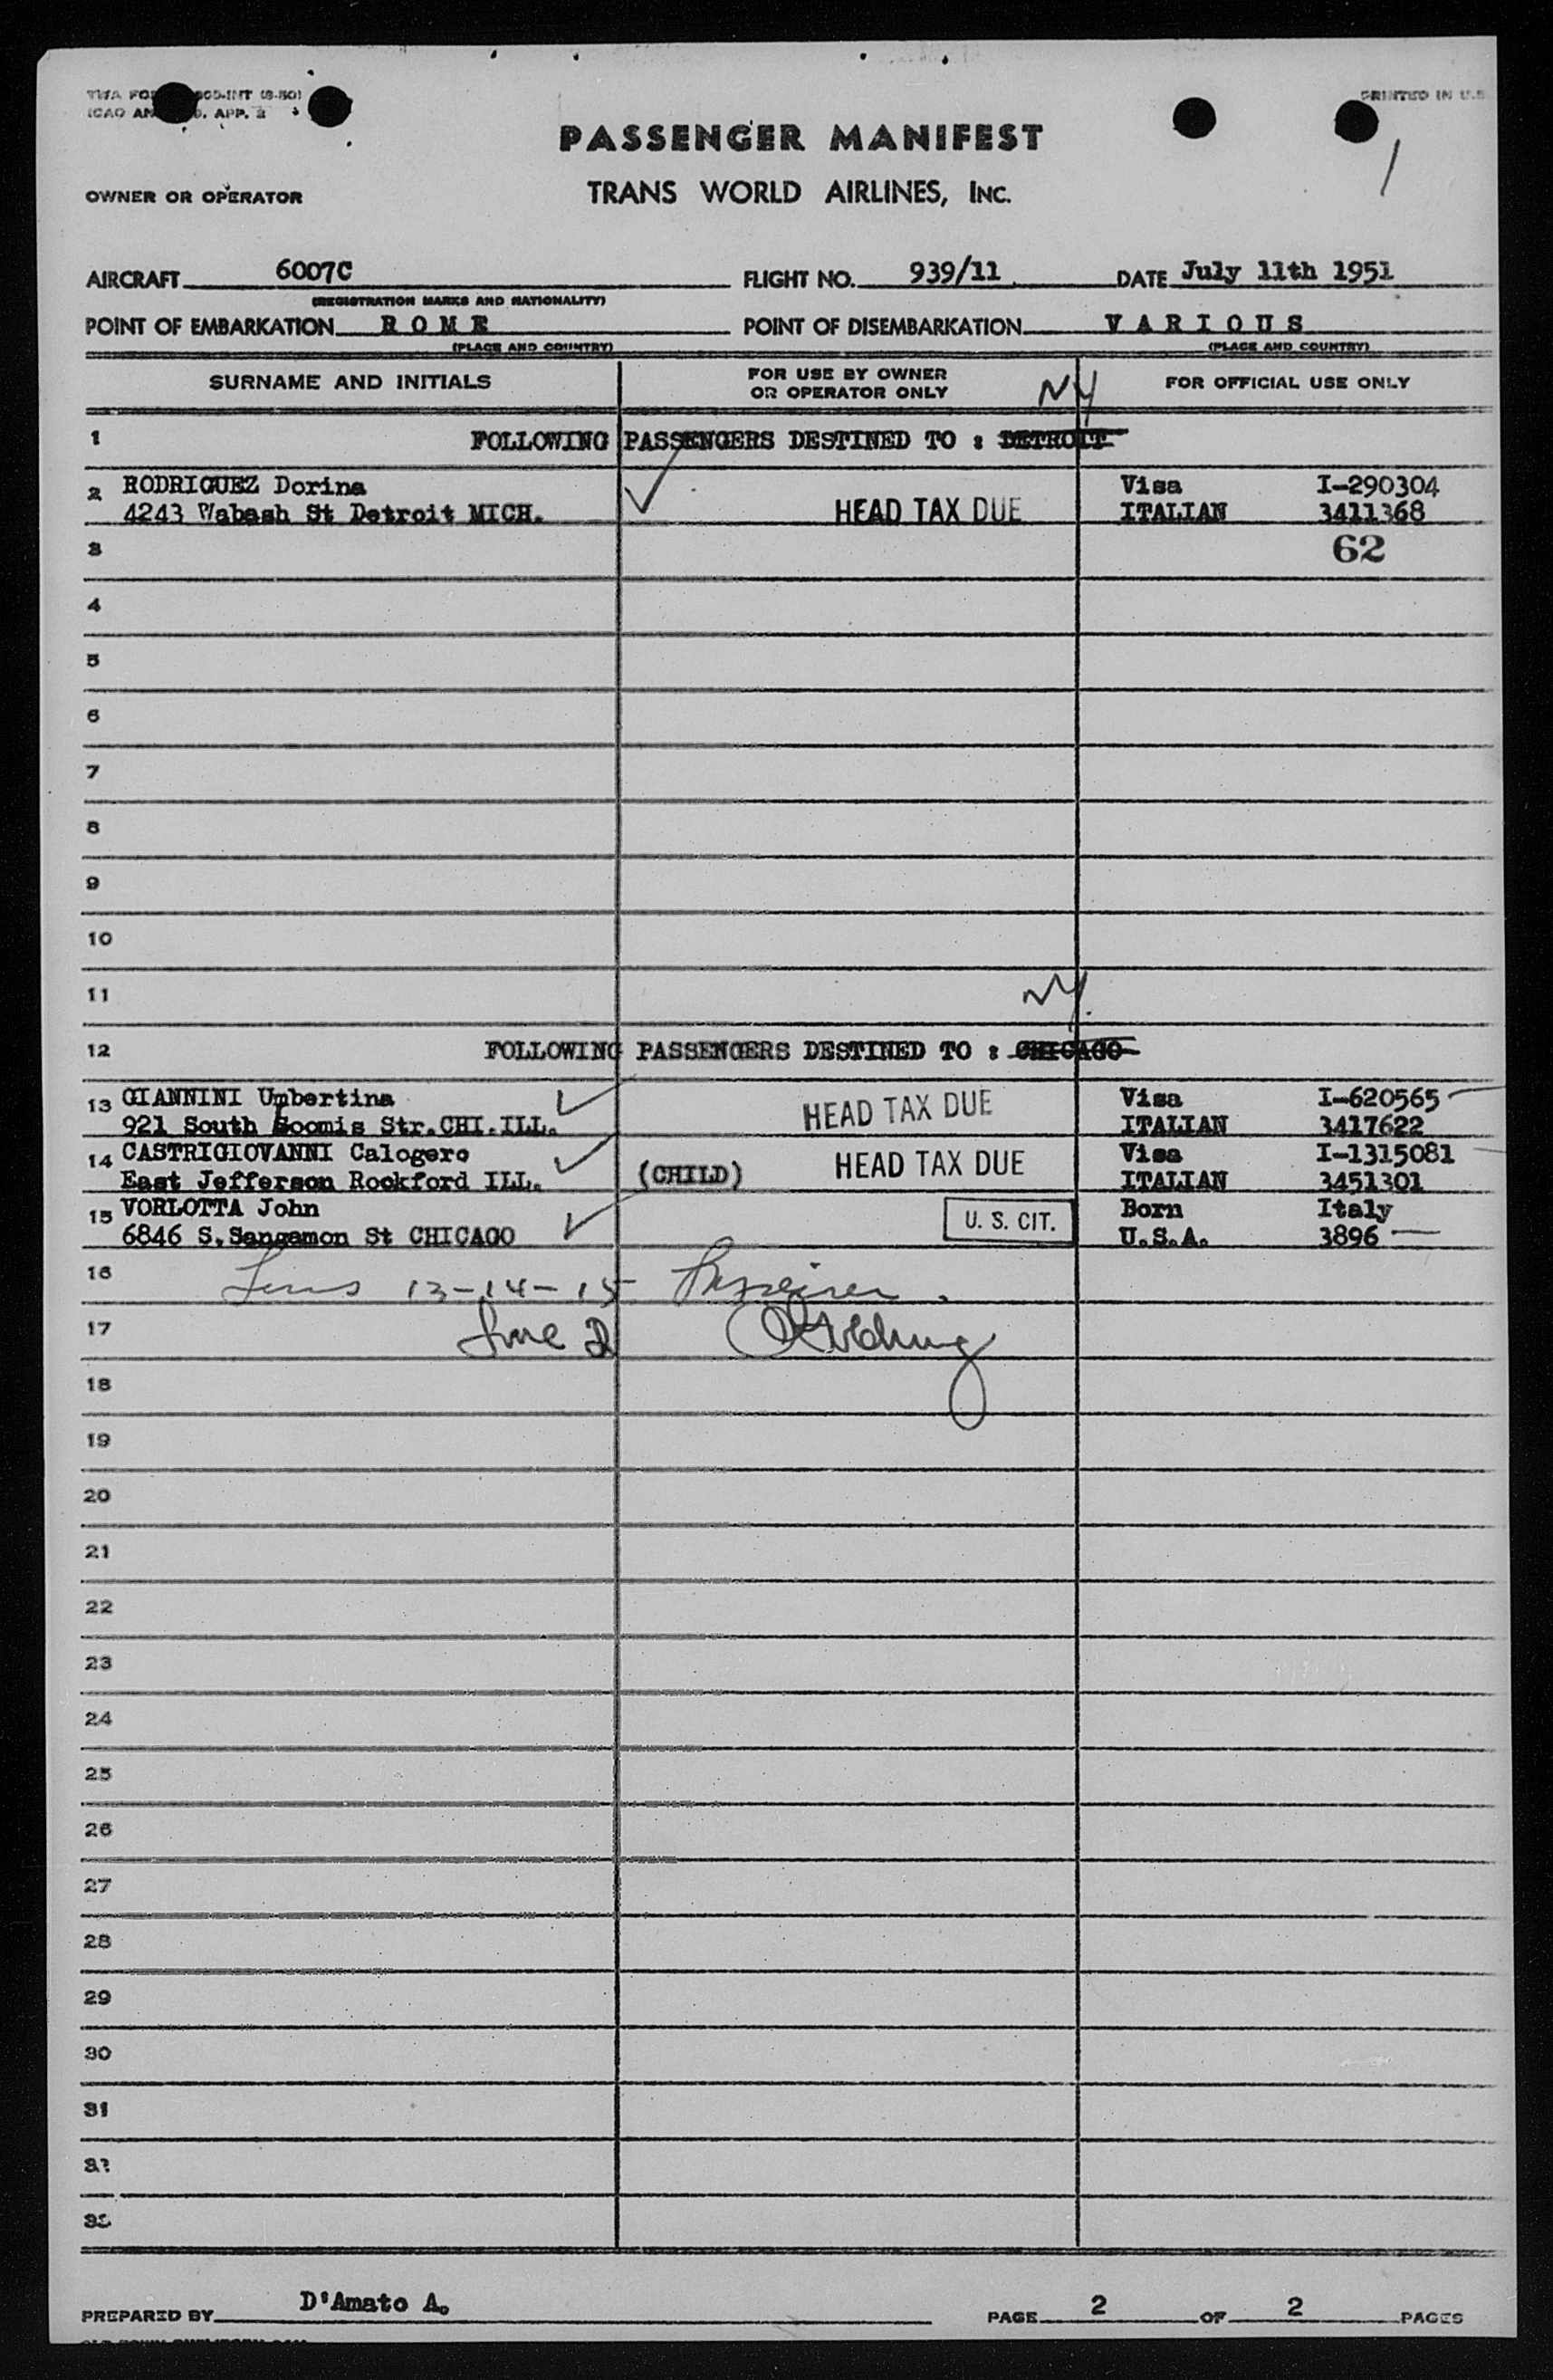 PRINTED IN U.S.
PASSENGER MANIFEST
OWNER OR OPERATOR TRANS WORLD AIRLINES, INC.
AIRCRAFT 6007C FLIGHT NO. 939/11 DATE July 11th 1951
(REGISTRATION MARKS AND NATIONALITY)
POINT OF EMBARKATION R O M E POINT OF DISEMBARKATION V A R I O U S
(PLACE AND COUNTRY) (PLACE AND COUNTRY)
SURNAME AND INITIALS FOR USE BY OWNER OR OPERATOR ONLY NY FOR OFFICIAL USE ONLY
1 FOLLOWING PASSENGERS DESTINED TO : DETROIT
2 RODRIGUEZ Dorina Visa I-290304
4243 Wabash St Detroit MICH. HEAD TAX DUE ITALIAN 3411368
3 62
4
5
6
7
8
9
10
11 NY.
12 FOLLOWING PASSENGERS DESTINED TO : CHICAGO
13 GIANNINI Umbertina HEAD TAX DUE Visa I-620565
921 South Loomis Str.CHI.ILL. ITALIAN 3417622
14 CASTRIGIOVANNI Calogero HEAD TAX DUE Visa I-1315081
East Jefferson Rockford ILL. (CHILD) ITALIAN 3451301
15 VORLOTTA John U. S. CIT. Born Italy
6846 S.Sangamon St CHICAGO U.S.A. 3896
16 Lines 13-14-15
17 Line 2
18
19
20
21
22
23
24
25
26
27
28
29
30
31
32
33
PREPARED BY D'Amato A. PAGE 2 OF 2 PAGES